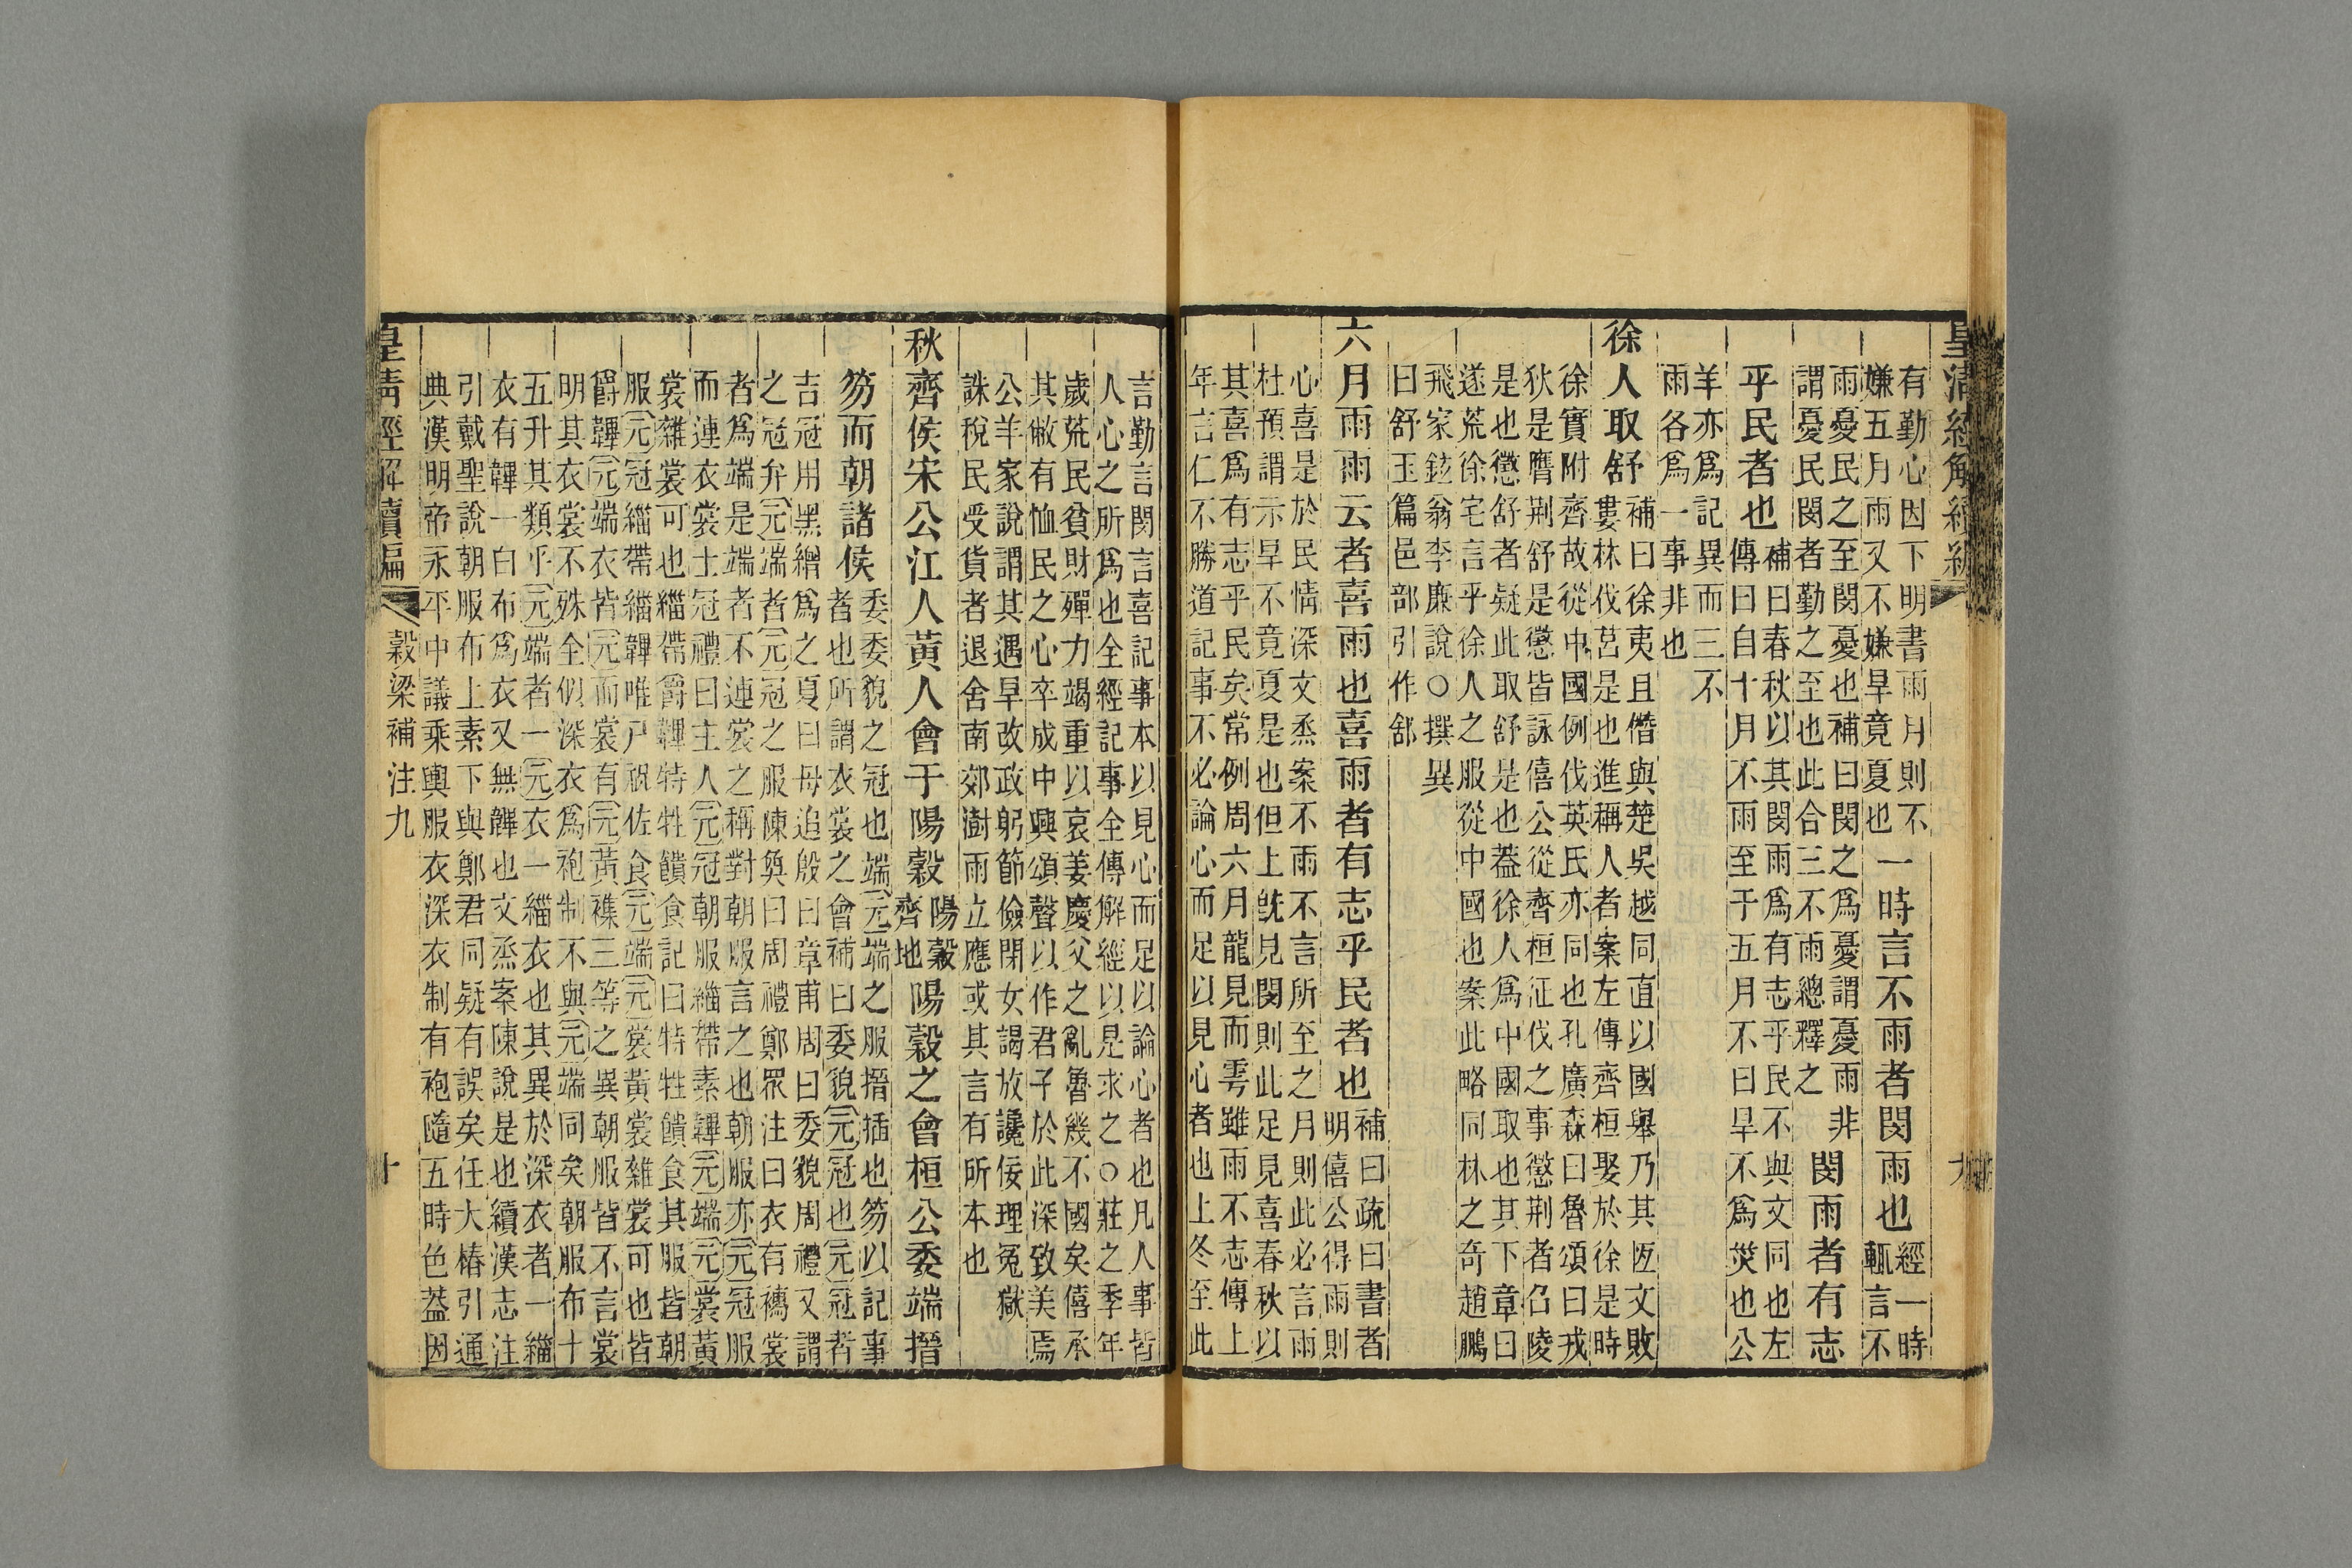 皇清經解續編 九
有勤心因下明書雨月則不
嫌五月雨又不嫌旱竟夏也
一時言不雨者閔雨也
經一時
輒言不
雨憂民之至閔憂也補曰閔之爲憂謂憂雨非
謂憂民閔者勤之至也此合三不雨總釋之
閔雨者有志
乎民者也
補曰春秋以其閔雨爲有志乎民不與文同也左
傳曰自十月不雨至于五月不曰旱不爲災也公
羊亦爲記異而三不
雨各爲一事非也
徐人取舒
補曰徐夷且僭與楚吳越同直以國舉乃其恆文敗
婁林伐莒是也進稱人者案左傳齊桓娶於徐是時
徐實附齊故從中國例伐英氏亦同也孔廣森曰魯頌曰戎
狄是膺荆舒是懲皆詠僖公從齊桓征伐之事懲荆者召陵
是也懲舒者疑此取舒是也葢徐人爲中國取也其下章曰
遂荒徐宅言乎徐人之服從中國也案此略同林之奇趙鵬
飛家鉉翁李廉說○撰異
曰舒玉篇邑部引作䣄
六月雨雨云者喜雨也喜雨者有志乎民者也
補曰疏曰書者
明僖公得雨則
心喜是於民情深文烝案不雨不言所至之月則此必言雨
杜預謂示旱不竟夏是也但上旣見閔則此足見喜春秋以
其喜爲有志乎民矣常例周六月龍見而雩雖雨不志傳上
年言仁不勝道記事不必論心而足以見心者也上冬至此
言勤言閔言喜記事本以見心而足以論心者也凡人事皆
人心之所爲也全經記事全傳解經以是求之○莊之季年
歲荒民貧財殫力竭重以哀姜慶父之亂魯幾不國矣僖承
其敝有恤民之心卒成中興頌聲以作君子於此深致美焉
公羊家說謂其遇旱改政躬節儉閉女謁放讒佞理冤獄
誅稅民受貨者退舍南郊澍雨立應或其言有所本也
秋齊侯宋公江人黃人會于陽穀
陽穀
齊地
陽穀之會桓公委端搢
笏而朝諸侯
委委貌之冠也端元端之服搢插也笏以記事
者也所謂衣裳之會補曰委貌元冠也元冠者
吉冠用黑繒爲之夏曰母追殷曰章甫周曰委貌周禮又謂
之冠弁元端者元冠之服陳奐曰周禮鄭眾注曰衣有襦裳
者爲端是端者不連裳之稱對朝服言之也朝服亦元冠服
而連衣裳士冠禮曰主人元冠朝服緇帶素韠元端元裳黃
裳雜裳可也緇帶爵韠特牲饋食記曰特牲饋食其服皆朝
服元冠緇帶緇韠唯尸祝佐食元端元裳黃裳雜裳可也皆
爵韠元端衣皆元而裳有元黃襍三等之異朝服皆不言裳
明其衣裳不殊全似深衣爲袍制不與元端同矣朝服布十
五升其類乎元端者一元衣一緇衣也其異於深衣者一緇
衣有韠一白布爲衣又無韠也文烝案陳說是也續漢志注
引戴聖說朝服布上素下與鄭君同疑有誤矣任大椿引通
典漢明帝永平中議乘輿服衣深衣制有袍隨五時色葢因
皇清經解續編 穀梁補注九 十